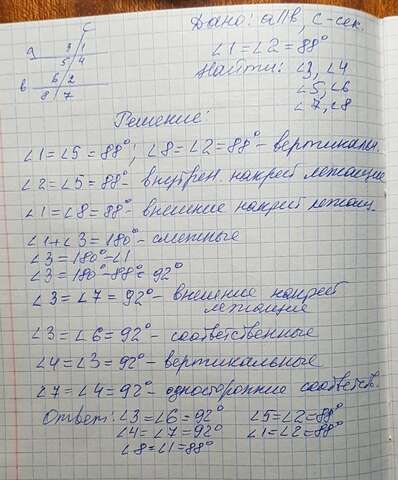 Дано: a||b, c-сек.
∠1=∠2=88°
Найти: ∠3, ∠4
∠5, ∠6
∠7, ∠8
c
a 3 1
5 4
в 6 2
8 7
Решение:
∠1=∠5=88°; ∠8=∠2=88°- вертикальн.
∠2=∠5=88°- внутрен. накрест лежащие
∠1=∠8=88°- внешние накрест лежащ.
∠1+∠3=180°- смежные
∠3=180°-∠1
∠3=180°-88°=92°
∠3=∠7=92°- внешние накрест
лежащие
∠3=∠6=92°- соответственные
∠4=∠3=92°- вертикальные
∠7=∠4=92°- односторонние соответств.
Ответ: ∠3=∠6=92° ∠5=∠2=88°
∠4=∠7=92° ∠1=∠2=88°
∠8=∠1=88°